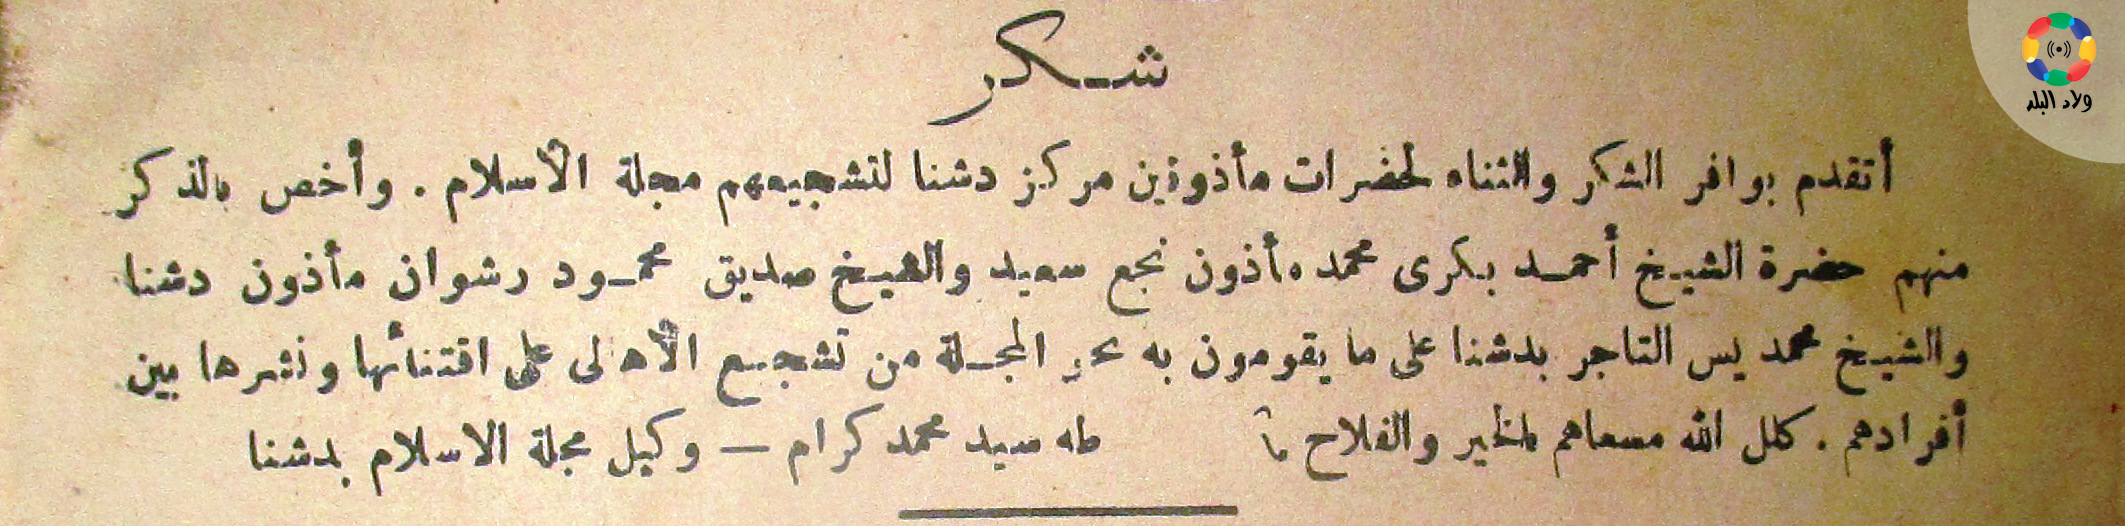 شكر
أتقدم بوافر الشكر والثناء لحضرات مأذونين مركز دشنا لتشجيعهم مجلة الأسلام . وأخص بالذكر
منهم حضرة الشيخ أحمد بكرى محمد مأذون نجع سعيد والشيخ صديق محمود رشوان مأذون دشنا
والشيخ محمد يس التاجر بدشنا على ما يقومون به نحو المجلة من تشجيع الأهالى على اقتنائها ونشرها بين
أفرادهم . كلل الله مسعاهم بالخير والفلاح طه سيد محمد كرام — وكيل مجلة الاسلام بدشنا
ولاد البلد